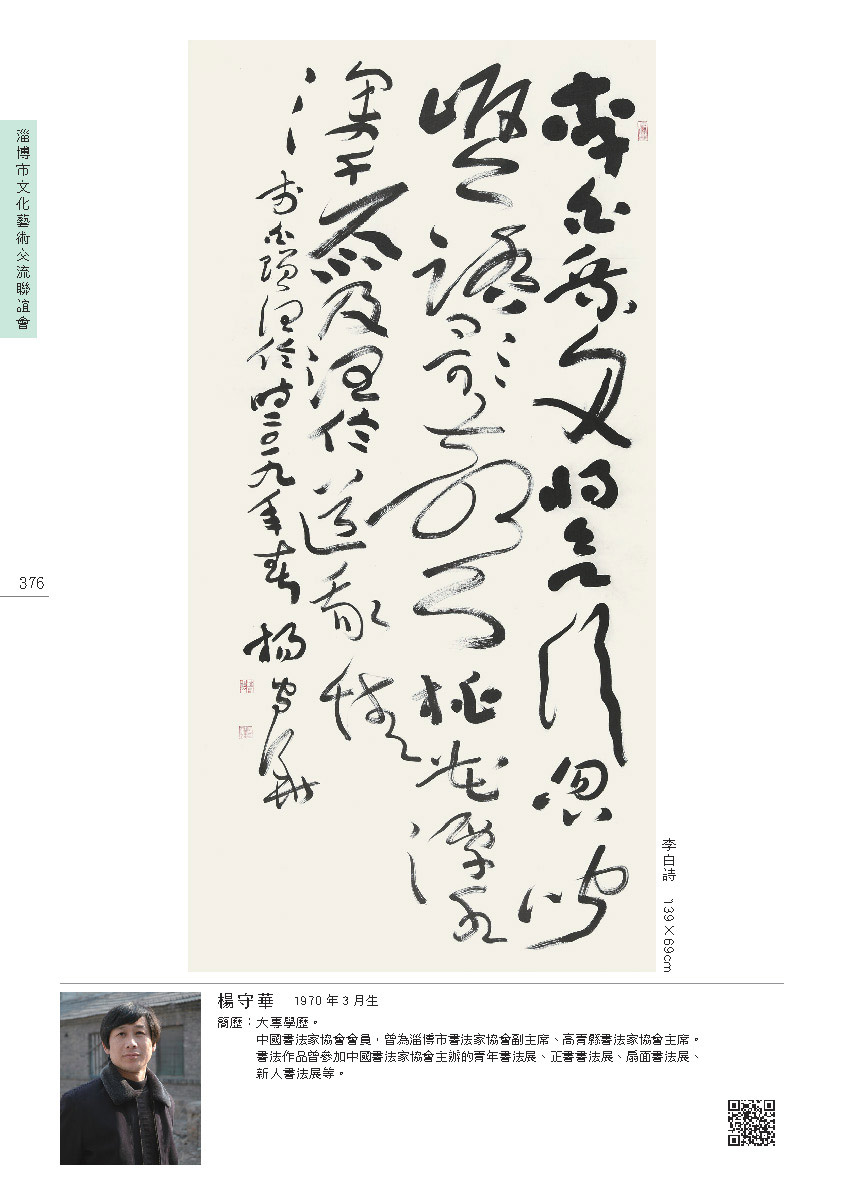 淄博市文化藝術交流聯誼會
376
李白乘舟將欲行忽聞
岸上踏歌聲桃花潭水
深千尺不及汪倫送我情
李白贈汪倫詩二〇一九年春楊守華
李白詩 139×69cm
楊守華 1970 年 3 月生
簡歷：大專學歷。
中國書法家協會會員，曾為淄博市書法家協會副主席、高青縣書法家協會主席。
書法作品曾參加中國書法家協會主辦的青年書法展、正書書法展、扇面書法展、
新人書法展等。